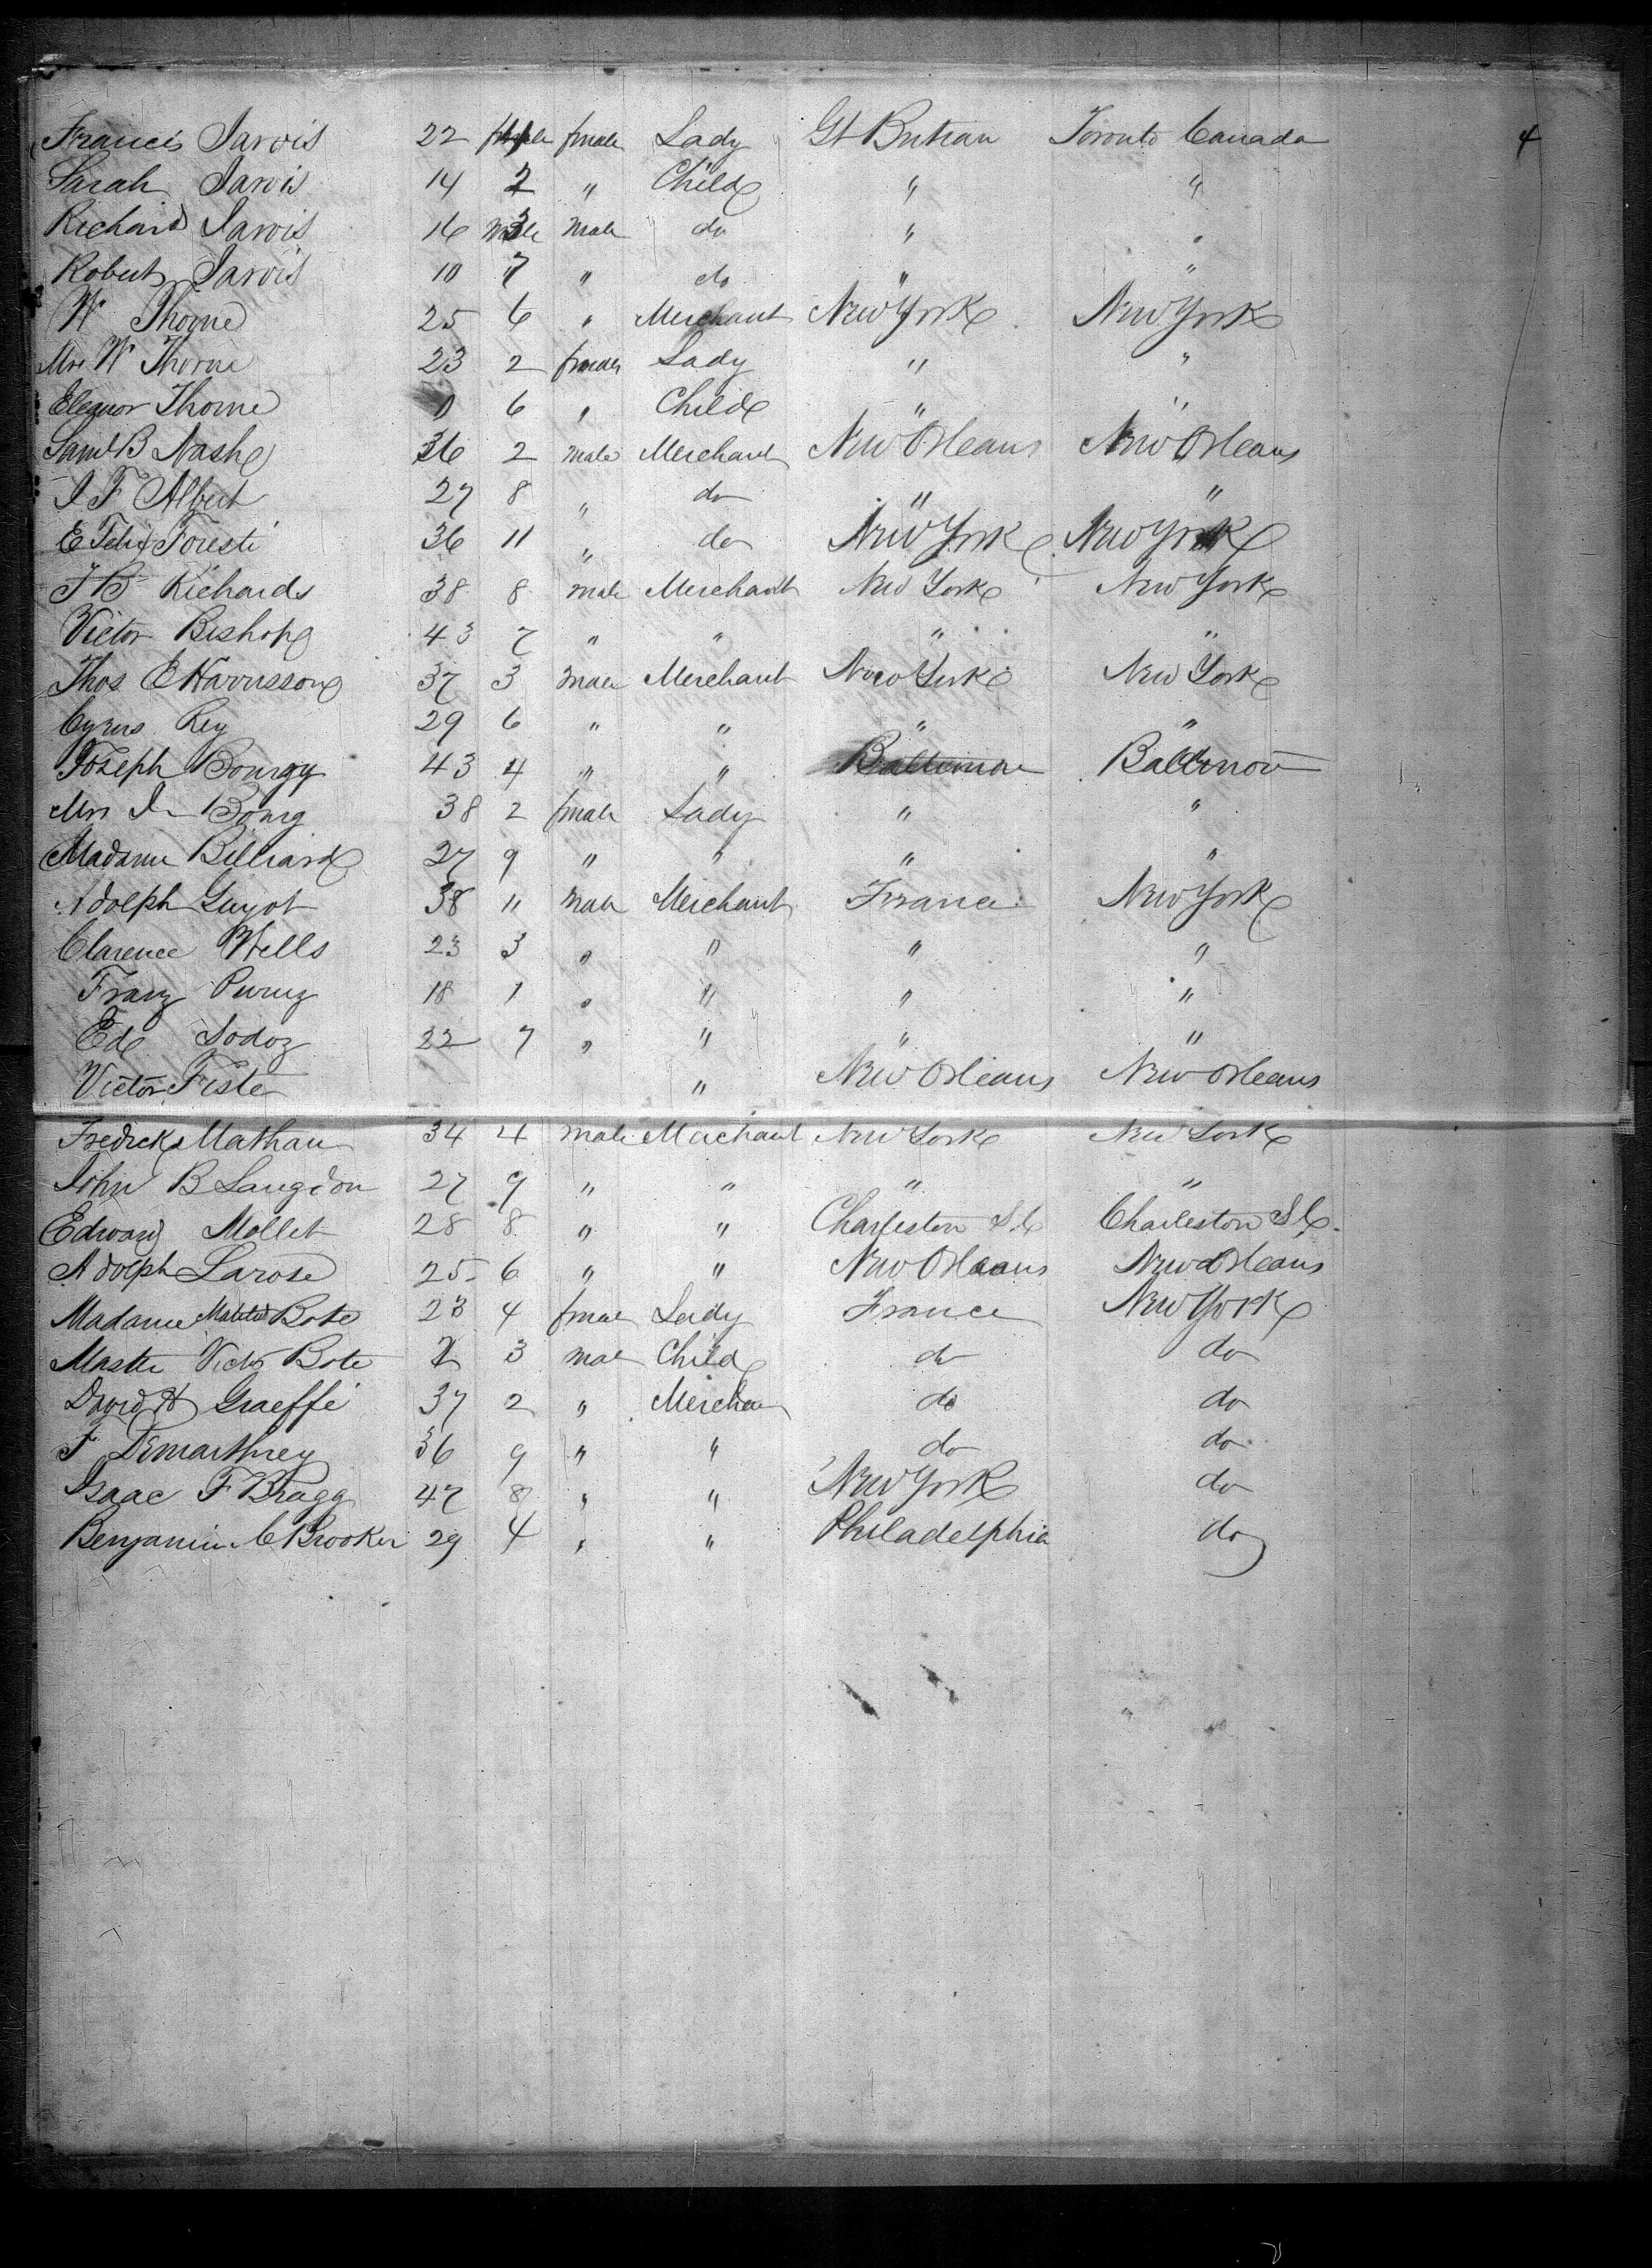 Francis Jarvis 22 4 female Lady Gt Britian Toronto Canada 4
Sarah Jarvis 14 2 " Child " "
Richard Jarvis 16 3 male do " "
Robert Jarvis 10 7 " do " "
W Thorne 25 6 " Merchant New York New York
Mrs W Thorne 23 2 female Lady " "
Eleanor Thorne 6 " Child " "
Saml B Nash 36 2 male Merchant New Orleans New Orleans
J F Albert 27 8 " do " "
E Felix Foresti 36 11 " do New York New York
J B Richards 38 8 male Merchant New York New York
Victor Bishop 43 7 " " " "
Thos E Harrisson 37 3 male Merchant New York New York
Cyrus Rey 29 6 " " " "
Joseph Bourgy 43 4 " " Baltimore Baltimore
Mrs J Bourg 38 2 female Lady " "
Madame Billiard 27 9 " " " "
Adolph Guyot 38 11 male Merchant France New York
Clarence Wells 23 3 " " " "
Franz 18 1 " " " "
Ed Sodoz 22 7 " " " "
Victor Fiste " New Orleans New Orleans
Fredick Mathau 34 4 male Merchant New York New York
John B Langdon 27 9 " " " "
Edward Mollet 28 8 " " Charleston S.C Charleston S.C.
Adolph Larose 25 6 " " New Orleans New Orleans
Madame Bote 23 4 female Lady France New York
Master Victor Bote 2 3 male Child do do
David H Graeffe 37 2 " Merchan do do
F Demarthrey 36 9 " " do do
Isaac F Bragg 47 8 " " New York do
Benjamin C Brooker 29 4 " " Philadelphia do